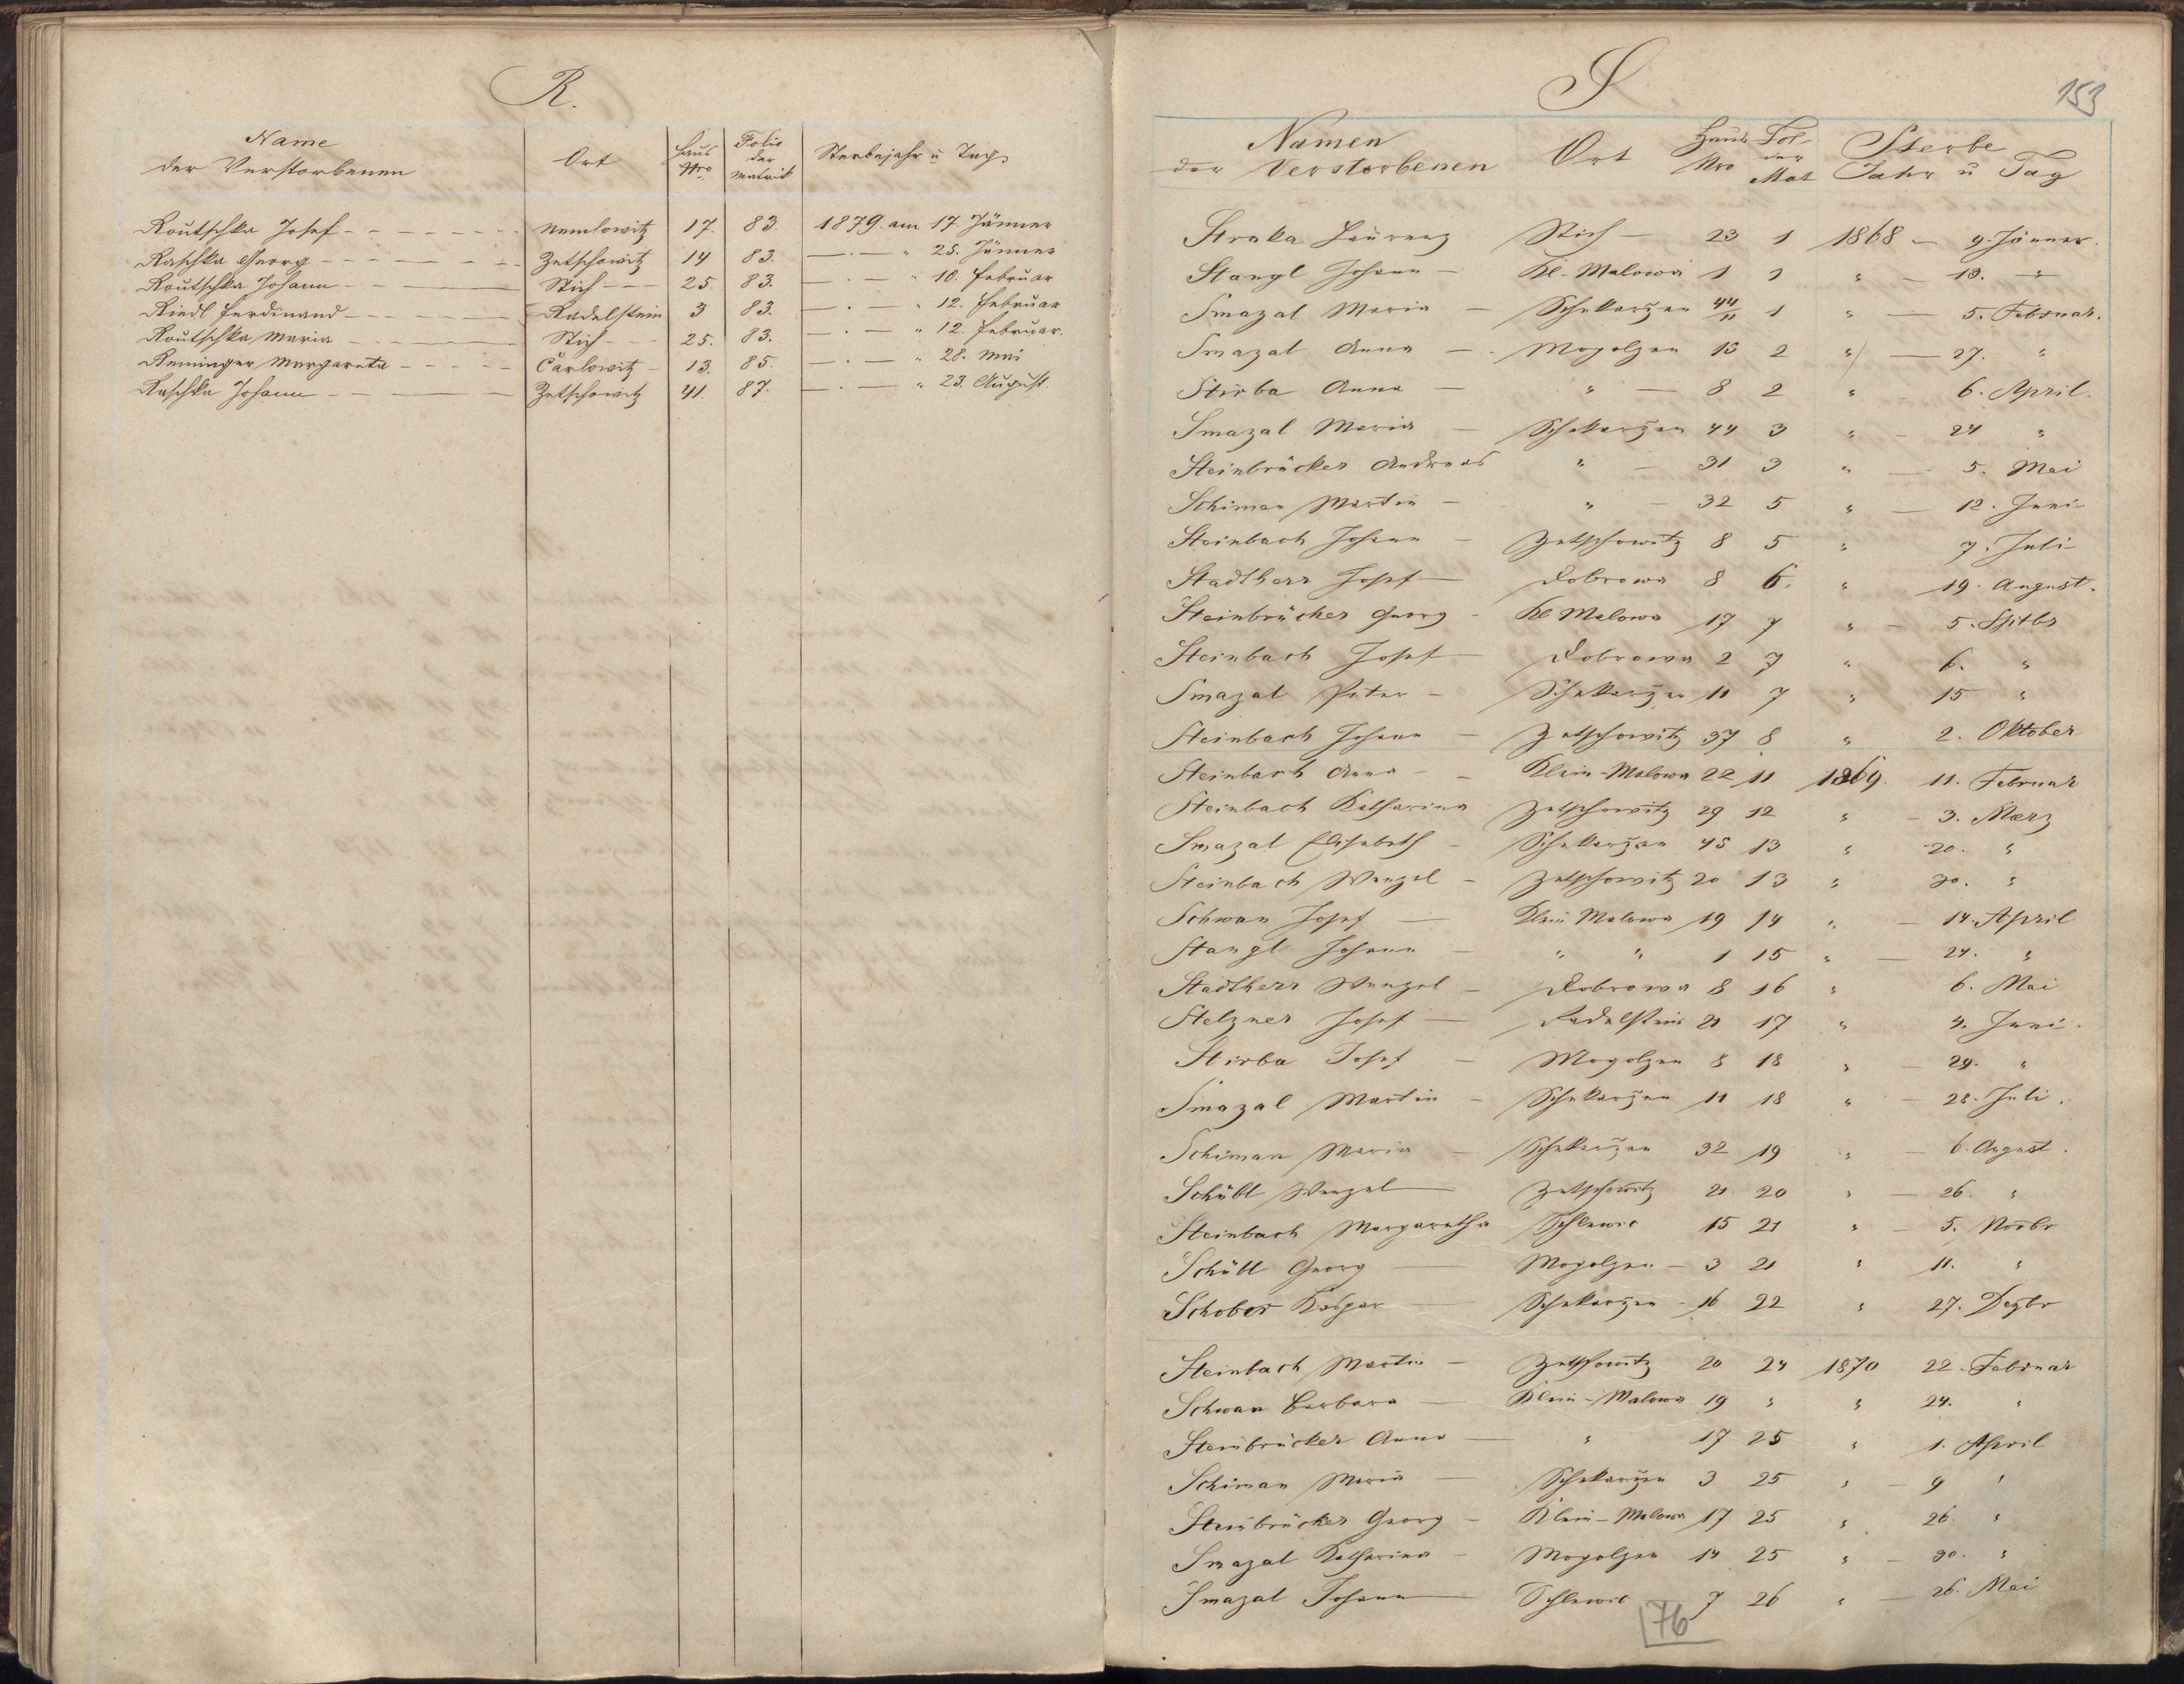 R.
Name der Verstorbenen Ort Haus Nro Folio der Matrik Sterbejahr u Tag
Routschka Josef Nemlowitz 17. 83. 1879. am 17. Jänner
Raschka Georg Zetschowitz 14 83. — . — " 25. Jänner
Routschka Johann Stich 25. 83. — . — " 10. Februar
Riedl Ferdinand Radelstein 3 83. — . — " 12. Februar
Routschka Maria Stich 25. 83. — . — " 12. Februar.
Reminger Margareta Čarlowitz 13. 85. — . — " 28. Mai
Raschka Johann Zetschowitz 41. 87. — . — " 23. August.
S
153
Namen der Verstorbenen Ort Haus Nro Fol der Mat Sterbe Jahr u Tag
Straka Laurenz Stich — 23 1 1868 — 9. Jänner.
Stangl Johann — Kl-Malowa 1 1 " — 18. "
Smazal Maria — Schekarzen 44/11 1 " — 5. Februar.
Smazal Anna — Mogolzen 13 2 " — 27. "
Stirba Anna — " — 8 2 " — 6. April.
Smazal Maria — Schekarzen 44 3 " — 24 "
Steinbrücker Andreas " — 31 3 " — 5. Mai
Schiman Martin — " — 32 5 " — 12. Juni
Steinbach Johann — Zetschowitz 8 5 " 7. Juli
Stadtherr Josef — Dobrowa 8 6. " 19. August.
Steinbrücker Georg — Kl Malowa 17 7 " — 5. Sptbr
Steinbach Josef — Dobrowa 2 7 " 6. "
Smazal Peter — Schekarzen 11 7 " 15 "
Steinbach Johann — Zetschowitz 37 8 " 2. Oktober
Steinbach Anna — Klein-Malowa 22 11 1869. 11. Februar
Steinbach Katharina Zetschowitz 29 12 " — 3. Maerz
Smazal Elisabeth — Schekarzen 45 13 " 20. "
Steinbach Wenzel — Zetschowitz 20 13 " 30. "
Schwan Josef — Klein Malowa 19 14 " — 14. April
Stangl Johann — " " 1 15 " — 24. "
Stadtherr Wenzel — Dobrowa 8 16 " 6. Mai
Stelzner Josef — Radelstein 21 17 " 4. Juni.
Stirba Josef — Mogolzen 8 18 " — 29. "
Smazal Martin — Schekarzen 11 18 " — 28. Juli.
Schiman Maria — Schekarzen 32 19 " — 6. August.
Schübl Wenzel — Zetschowitz 21 20 " — 26. "
Steinbach Margaretha Schlewic 15 21 " — 5. Novbr
Schübl Georg — Mogolzen — 3 21 " 11. "
Schober Kaspar — Schekarzen — 16 22 " 27. Dezbr
Steinbach Martin — Zetschowitz 20 24 1870 22. Februar
Schwan Barbara — Klein-Malowa 19 " " 24. "
Steinbrücker Anna — " 17 25 " 1. April
Schiman Maria — Schekarzen 3 25 " — 9 "
Steinbrücker Georg — Klein-Malowa 17 25 " 26. "
Smazal Katharina — Mogolzen 14 25 " — 30. "
Smazal Johann — Schlewic 7 26 " — 26. Mai
76